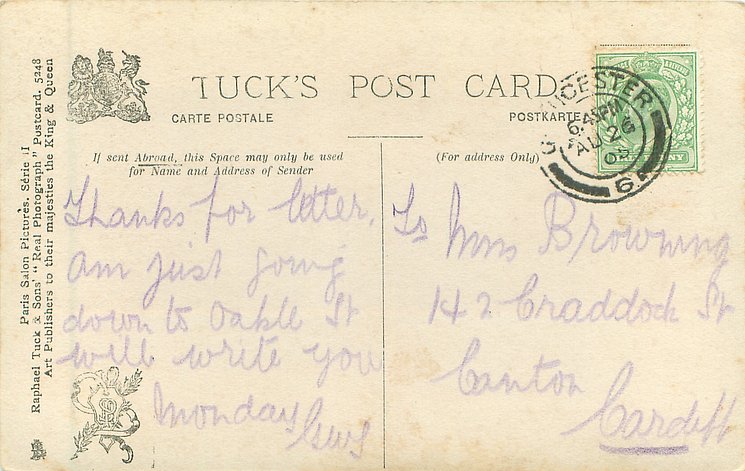 TUCK'S POST CARD
CARTE POSTALE
POSTKARTE
If sent Abroad, this Space may only be used
for Name and Address of Sender
(For address Only)
6.45PM
AU 26
6
Thanks for letter.
am just going
down to Oakle St
will write you
Monday
To Mrs Browning
142 Craddock St
Canton
Cardiff
Paris Salon Pictures. Série II
Raphael Tuck & Sons' "Real Photograph" Postcard. 5248
Art Publishers to their majesties the King & Queen